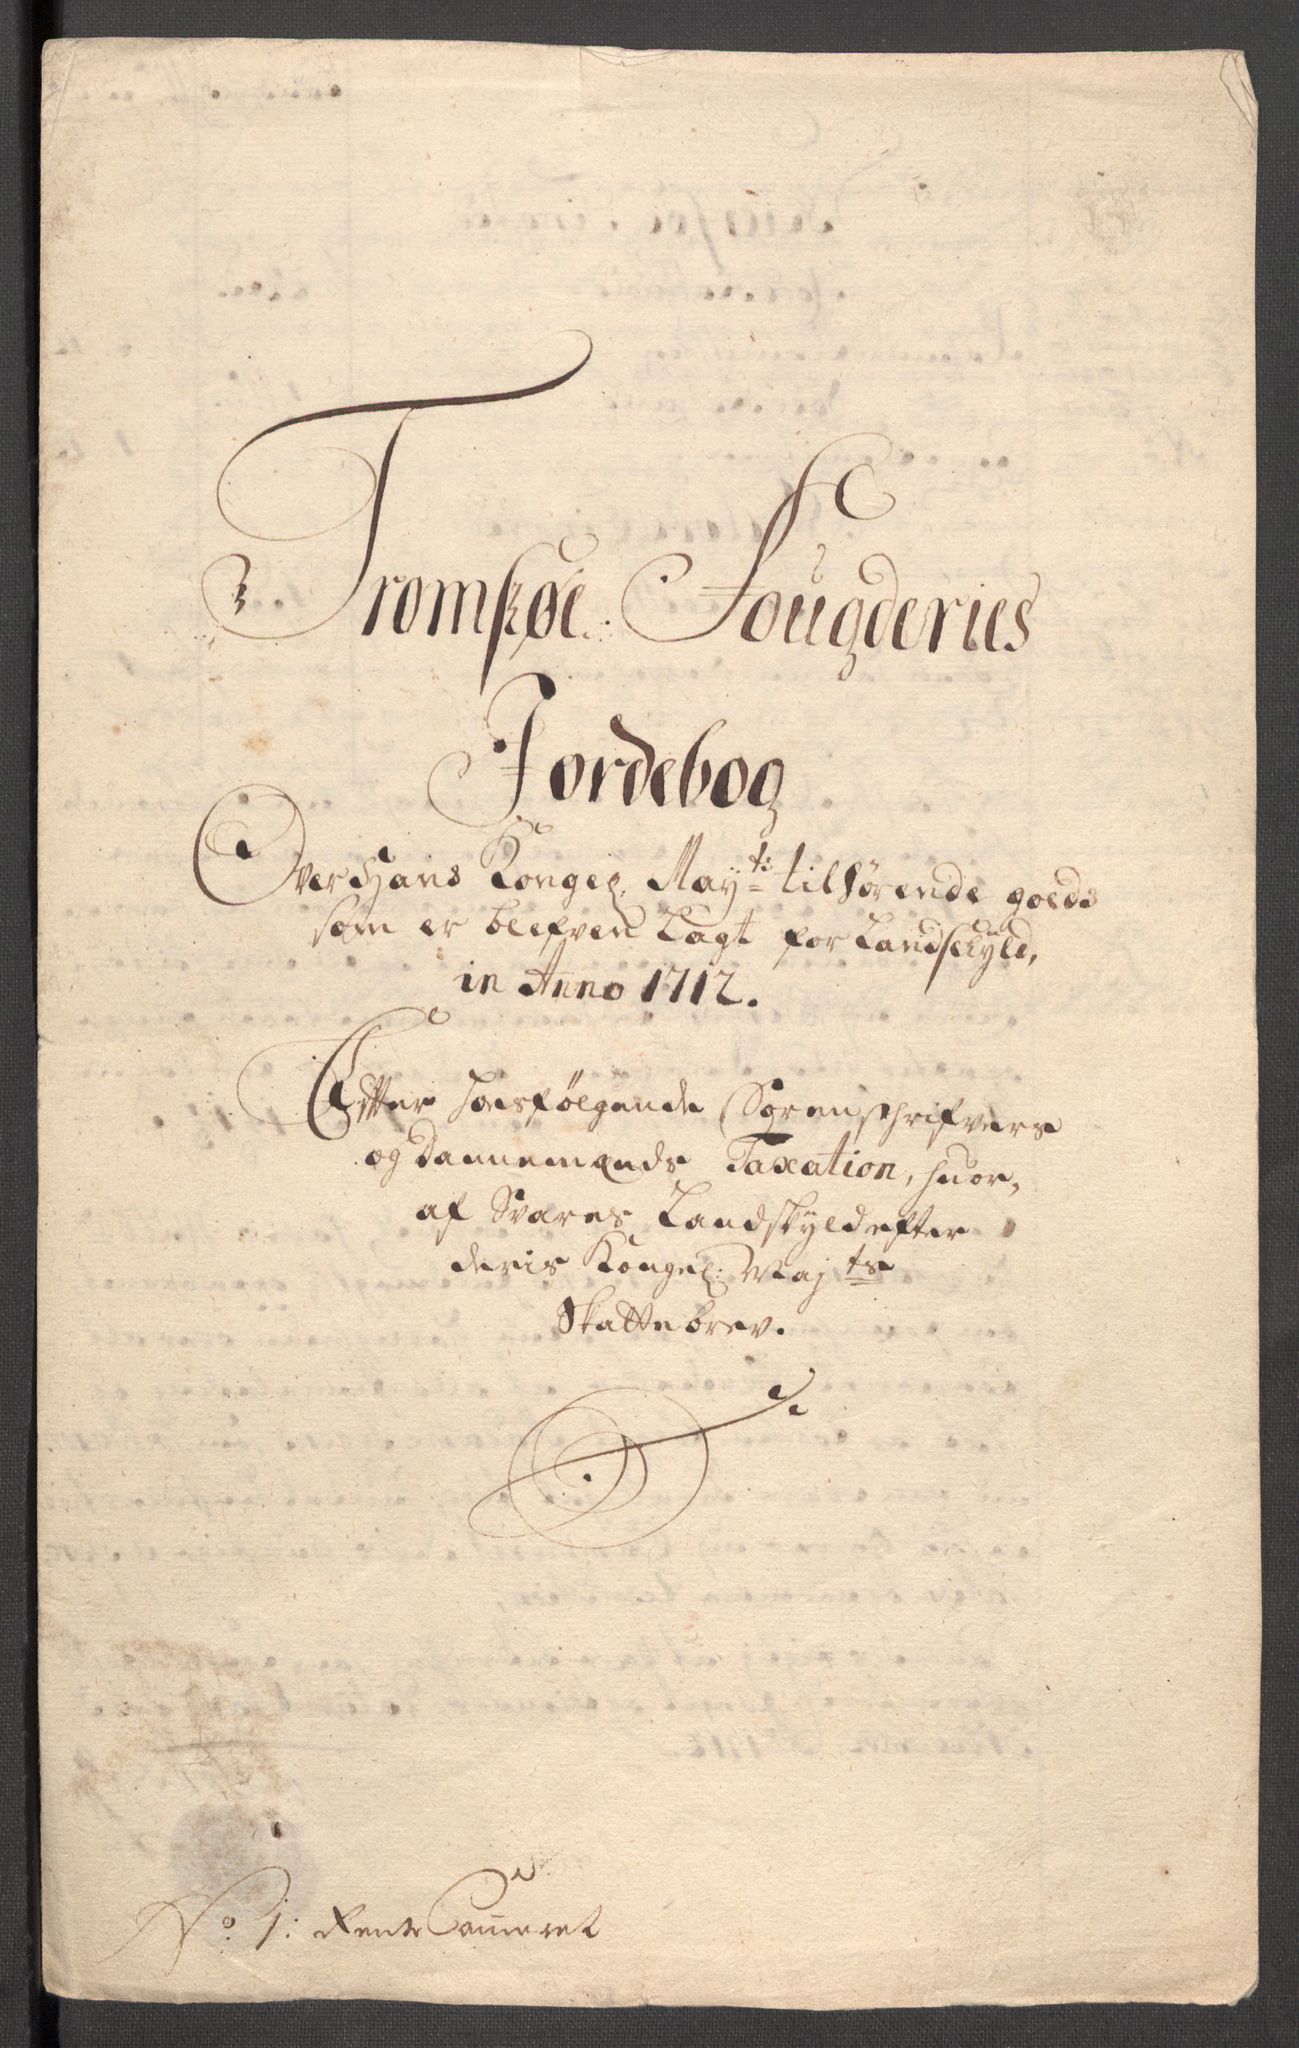 Tromsøe Fougderies
Jordebog
Over Hans Kongel. May:ts tilhørende goeds
som er blefven Lagt for Landschyld,
in Anno 1712.
Efter hosfølgende Sorenschrifvers
og Dannemænds Taxation, huor,
af Svares Landskyld efter
deris Kongel: Maj:ts
Skattebrev.
No 1: Rente Cammeret